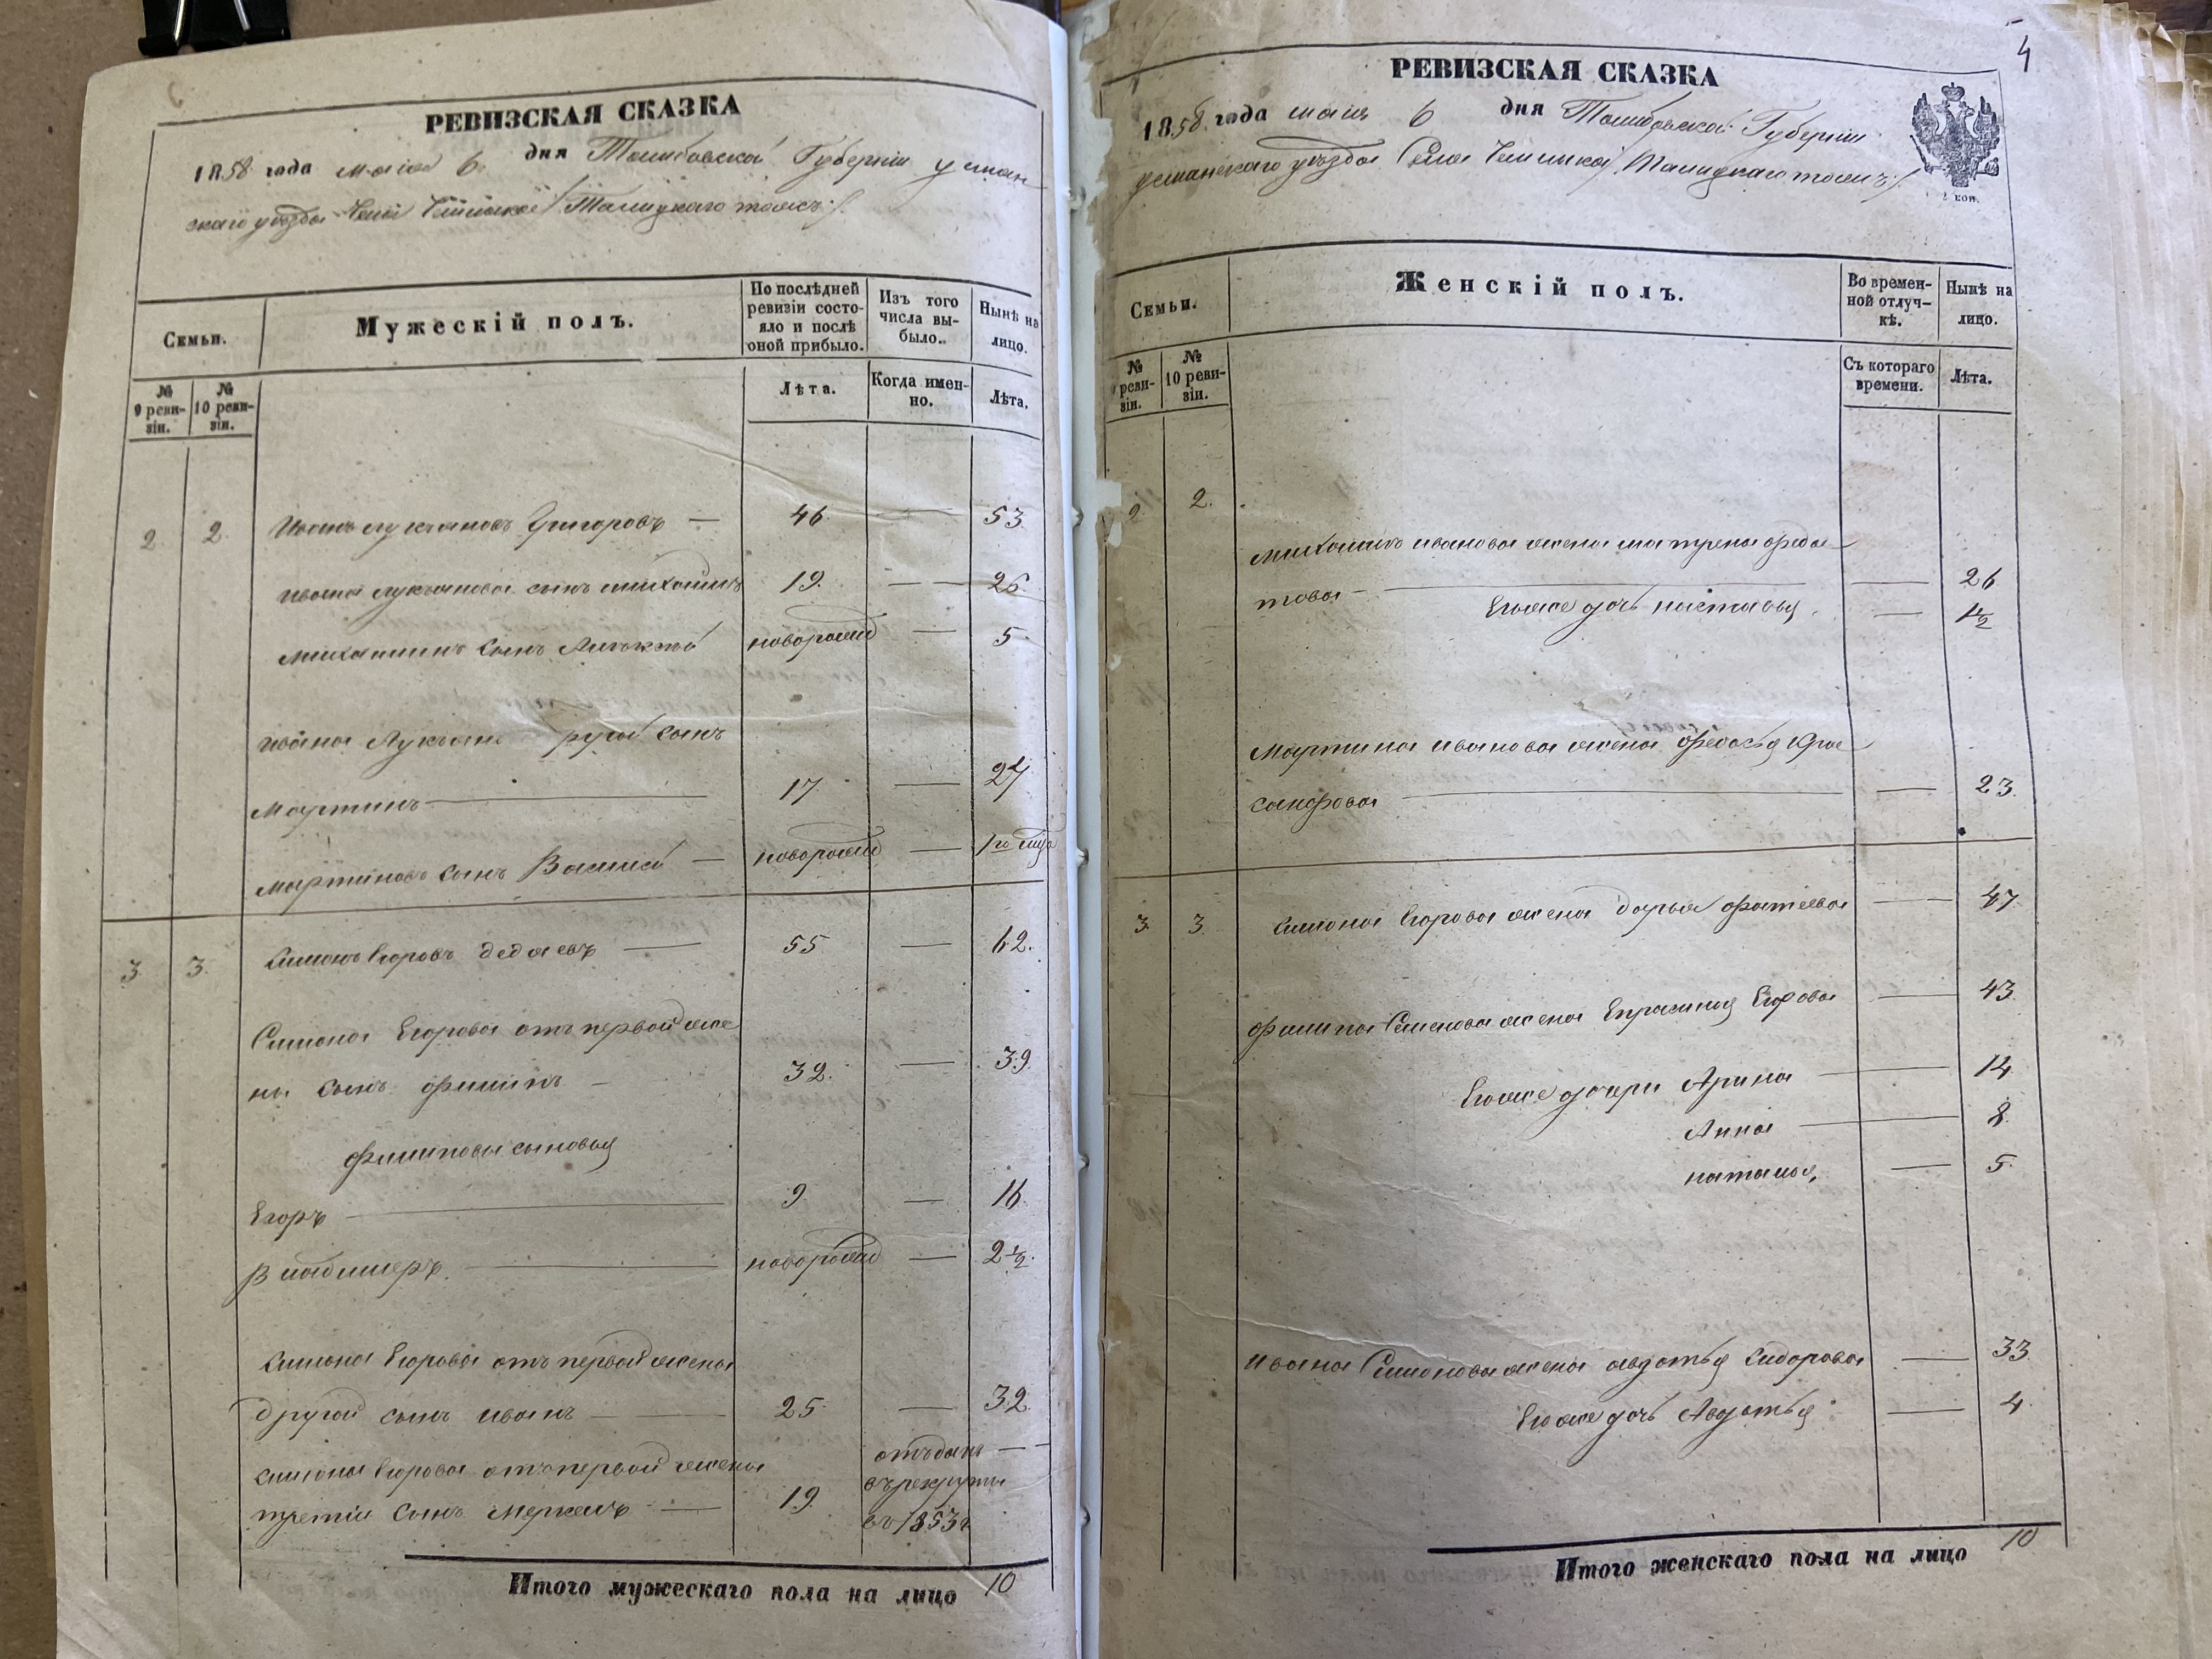 РЕВИЗСКАЯ СКАЗКА
1858 года маія 6 дня Тамбовской Губерніи усман
скаго уезда Села Талицкаго тожъ
Семьи.
Мужескій полъ.
По послѣдней ревизіи состояло и послѣ оной прибыло.
Изъ того числа выбыло..
Нынѣ на лицо.
№ 9 ревизіи.
№ 10 ревизіи.
Лѣта.
Когда именно.
Лѣта.
2 2 Иванъ Лукьяновъ Григоровъ — 46 53
ивана лукьянова сынъ михаилъ 19. — 26
михаилинъ сынъ Алексѣй новорожд — 5
ивана Лукьяно ругой сынъ
мартинъ — 17 — 24
мартиновъ сынъ Василій — новорожд — 1го
3 3. Симонъ Егоровъ дедаевъ — 55 — 62.
Симона Егорова отъ первой же
ны сынъ филипъ — 32. — 39
филиповы сыновья
Егоръ — 9 — 16
Владимеръ — новорожд — 2½
симона Егорова отъ первой жены
другой сынъ иванъ — 25 — 32
симона Егорова отъ первой жены
третій сынъ меркелъ — 19. отъданъ въ рекруты въ 1853г —
Итого мужескаго пола на лицо 10
4
РЕВИЗСКАЯ СКАЗКА
1858 года маія 6 дня Тамбовской Губерніи
усманскаго уезда Села Талицкаго тожъ
2 коп.
Семьи.
Женскій полъ.
Во временной отлучкѣ.
Нынѣ на лицо.
№ 9 ревизіи.
№ 10 ревизіи.
Съ котораго времени.
Лѣта.
2 2.
михаила иванова жена матрена федо
това — — 26
Егоже дочь настасья — 1½
Мартина иванова жена федосья
санфрова — — 23
3 3 симона Егорова жена дарья фатеева — 47
филипа Семенова жена Епросинья Егорова — 43
Егоже дочери Арина — 14
Анна — 8
наталья — 5
ивана Симонова жена авдотья сидорова — 33
Егоже дочь Авдотья — 4
Итого женскаго пола на лицо 10